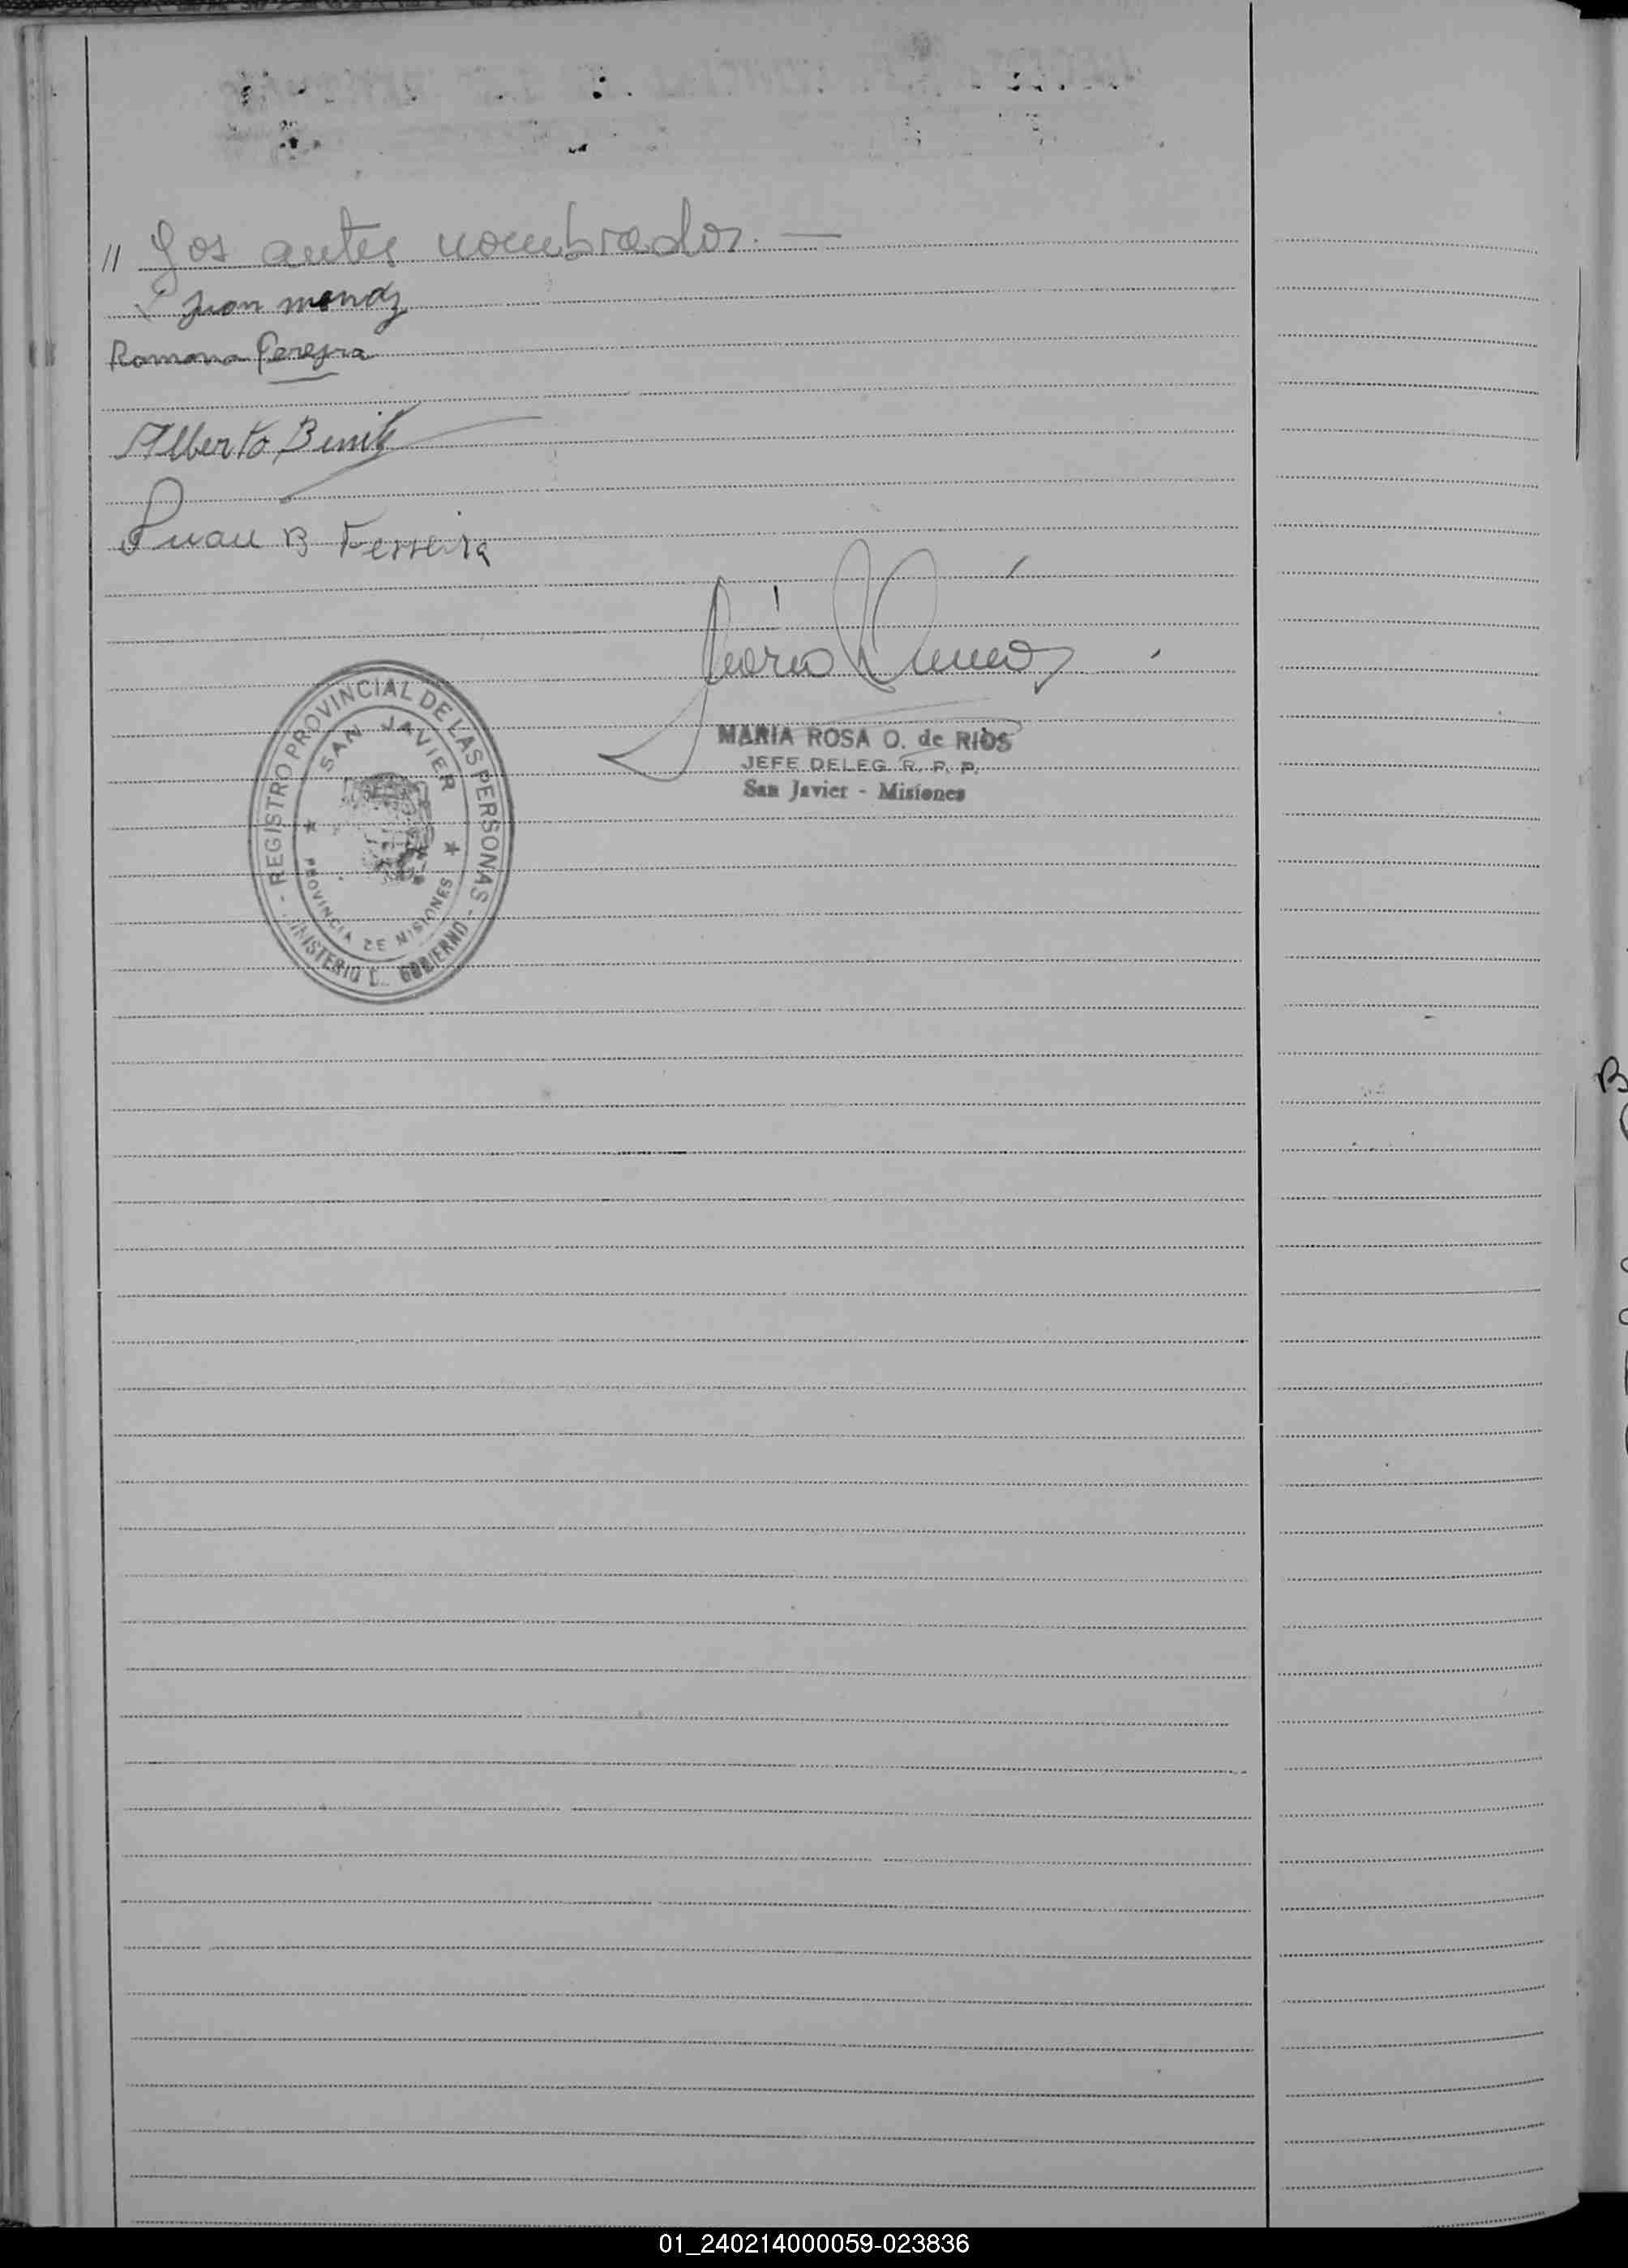 // Los antes nombrados. —
Juan Mendz
Romona Pereyra
Alberto Benitz
Juan B Ferreira
MARIA ROSA O. de RIOS
JEFE DELEG. R. P. P.
San Javier - Misiones
- REGISTRO PROVINCIAL DE LAS PERSONAS -
SAN JAVIER
PROVINCIA DE MISIONES
MINISTERIO DE GOBIERNO
B
01_240214000059-023836